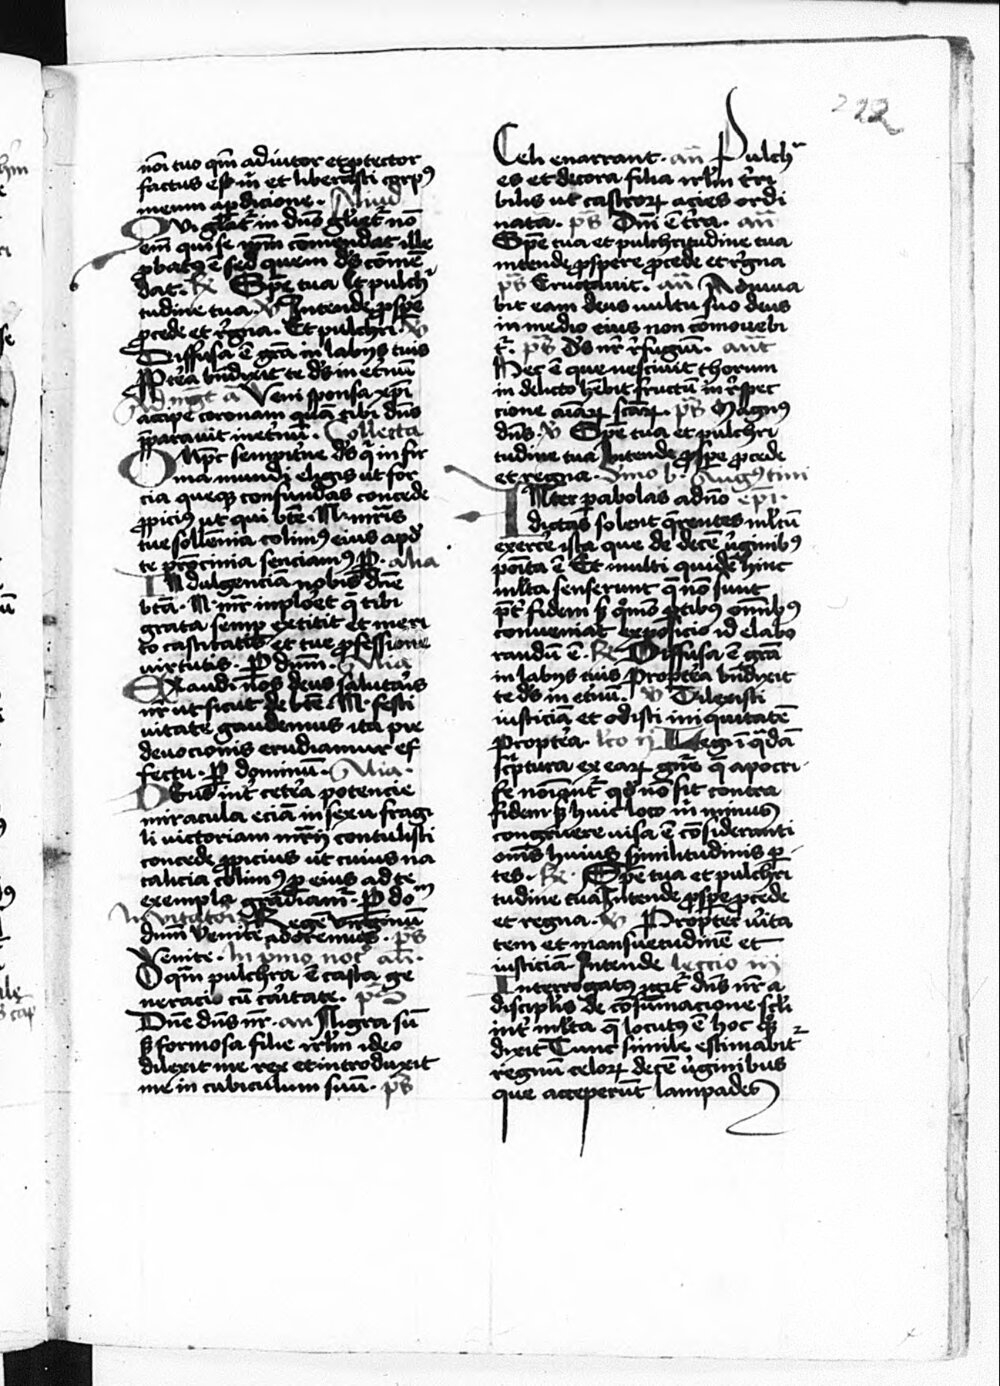 222
noi tuo qm̄ adiutor et ꝓtector
factus es m̄ et liberasti corpꝰ
meum a ꝑdicione. Aliud
Qui gl̄at̄ in dn̄o gl̄iet̄ nō
em̄ qui se ip̄m cōmendat ille
ꝓbatꝰ ē sed quem ds̄ cōmē
dat. R̄ Sp̄e tua et pulch
tudine tua. v̄ Intende ꝓspe
ꝓcede et r̄gna. Et pulchri. v̄
Diffusa ē gr̄a in labijs tuis
ꝓpt̄ea bn̄dixit te ds̄ in et̄nū
Ad mḡt ā Veni sponsa xp̄i
accipe coronam quā tibi dn̄s
p̄parauit in et̄nū. Collecta
Omp̄c sempit̄ne ds̄ q̄ infir
ma mundi eligis ut for
cia queqꝫ confundas concede
ꝓpiciꝰ ut qui bt̄e. N. mr̄is
tue sollēnia colimꝰ eius apd̄
te pr̄ocinia senciamꝰ P. alia
Indulgenciā nobis dn̄e
bt̄a. N. mr̄ inploret q̄ tibi
grata semp̄ extitit et meri
to castitatis et tue ꝓfessione
uirtutis. P dn̄m. Alia
Exaudi nos deus salutaris
nr̄ ut sicut de bt̄e. N. festi
uitate gaudemus ita pie
deuocionis erudiamur ef
fectu. P dominū. Alia.
Deus int̄ cet̄a potencie
miracula eciā in sexu fragi
li uictoriam mr̄ij contulisti
concede ꝓpicius ut cuius na
talicia colimꝰ ꝑ eius ad te
exempla gradiam̄. P dom
Inuitator̄ Regē virginū
dnm̄ Venite adoremus. ps̄
Venite. In pmo noct̄ an̄.
O qm̄ pulchra ē casta ge
neracio cū caritate. ps̄
Dn̄e dn̄s nr̄. an̄ Nigra sū
sꝫ formosa filie ir̄lm ideo
dilexit me rex et introduxit
me in cubiculum suū. ps̄
Celi enarrant. an̄ Pulchr̄
es et decora filia ir̄lm t̄ri
bilis ut castroꝝ acies ordi
nata. ps̄ Dn̄i ē t̄ra. an̄
Specie tua et pulchritudine tua
intende ꝓspere ꝓcede et r̄gna
ps̄ Eructauit. an̄ Adiuua
bit eam deus uultu suo deus
in medio eius non comouebi
t̄. ps̄ Ds̄ nr̄ r̄fugiū. ant̄
Hec ē que nesciuit thorum
in delicto hēbit fructū in r̄spec
cione aīaꝝ sc̄aꝝ. ps̄ Magnꝰ
dn̄s. v̄ Sp̄e tua et pulchri
tudine tua Intende ꝓspe ꝓcede
et regna. b. Augꝰtini
INter ꝑabolas a dn̄o ep̄i.
dictas solent q̄rentes ml̄tū
exerc̄e ista que de decē v̄ginibꝰ
poīta ē Et multi quidē hinc
ml̄ta senserunt q̄ nō sunt
p̄t̄ fidem sꝫ q̄mō ꝑtibꝰ omībꝰ
conueniat exposicio id elabo
randū ē. R̄ Diffusa ē gr̄a
in labijs tuis Propt̄ea bn̄dixit
te ds̄ in et̄nū. v̄ Dilexisti
iusticiā et odisti iniquitatē
Propt̄ea. lc̄o ij Legi ī q̄dā
sc̄ptura ex eaꝝ gn̄e q̄ apocri
fe noīant̄ qd̄ nō sit contra
fidem sꝫ huic loco m̄ minus
congruere uisa ē cōsideranti
om̄s huius similitudinis ꝑ
tes. R̄ Sp̄e tua et pulchri
tudine tua Intende ꝓspe ꝓcede
et regna. v̄ Propter v̄ita
tem et mansuetudinē et
iusticiā Intende leccio iij
Interrogatus igit̄ dn̄s nr̄ a
discipl̄is de cōsumacione scl̄i
int̄ ml̄ta q̄ locutꝰ ē hoc qꝫ
dixit Tunc simile estimabit̄
regnū celoꝝ decē v̄ginibus
que acceperūt lampades